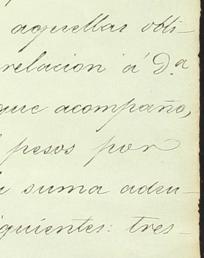 aquellas obli-
relacion á D.a
que acompaño,
pesos por
suma adeu-
iguientes: tres-